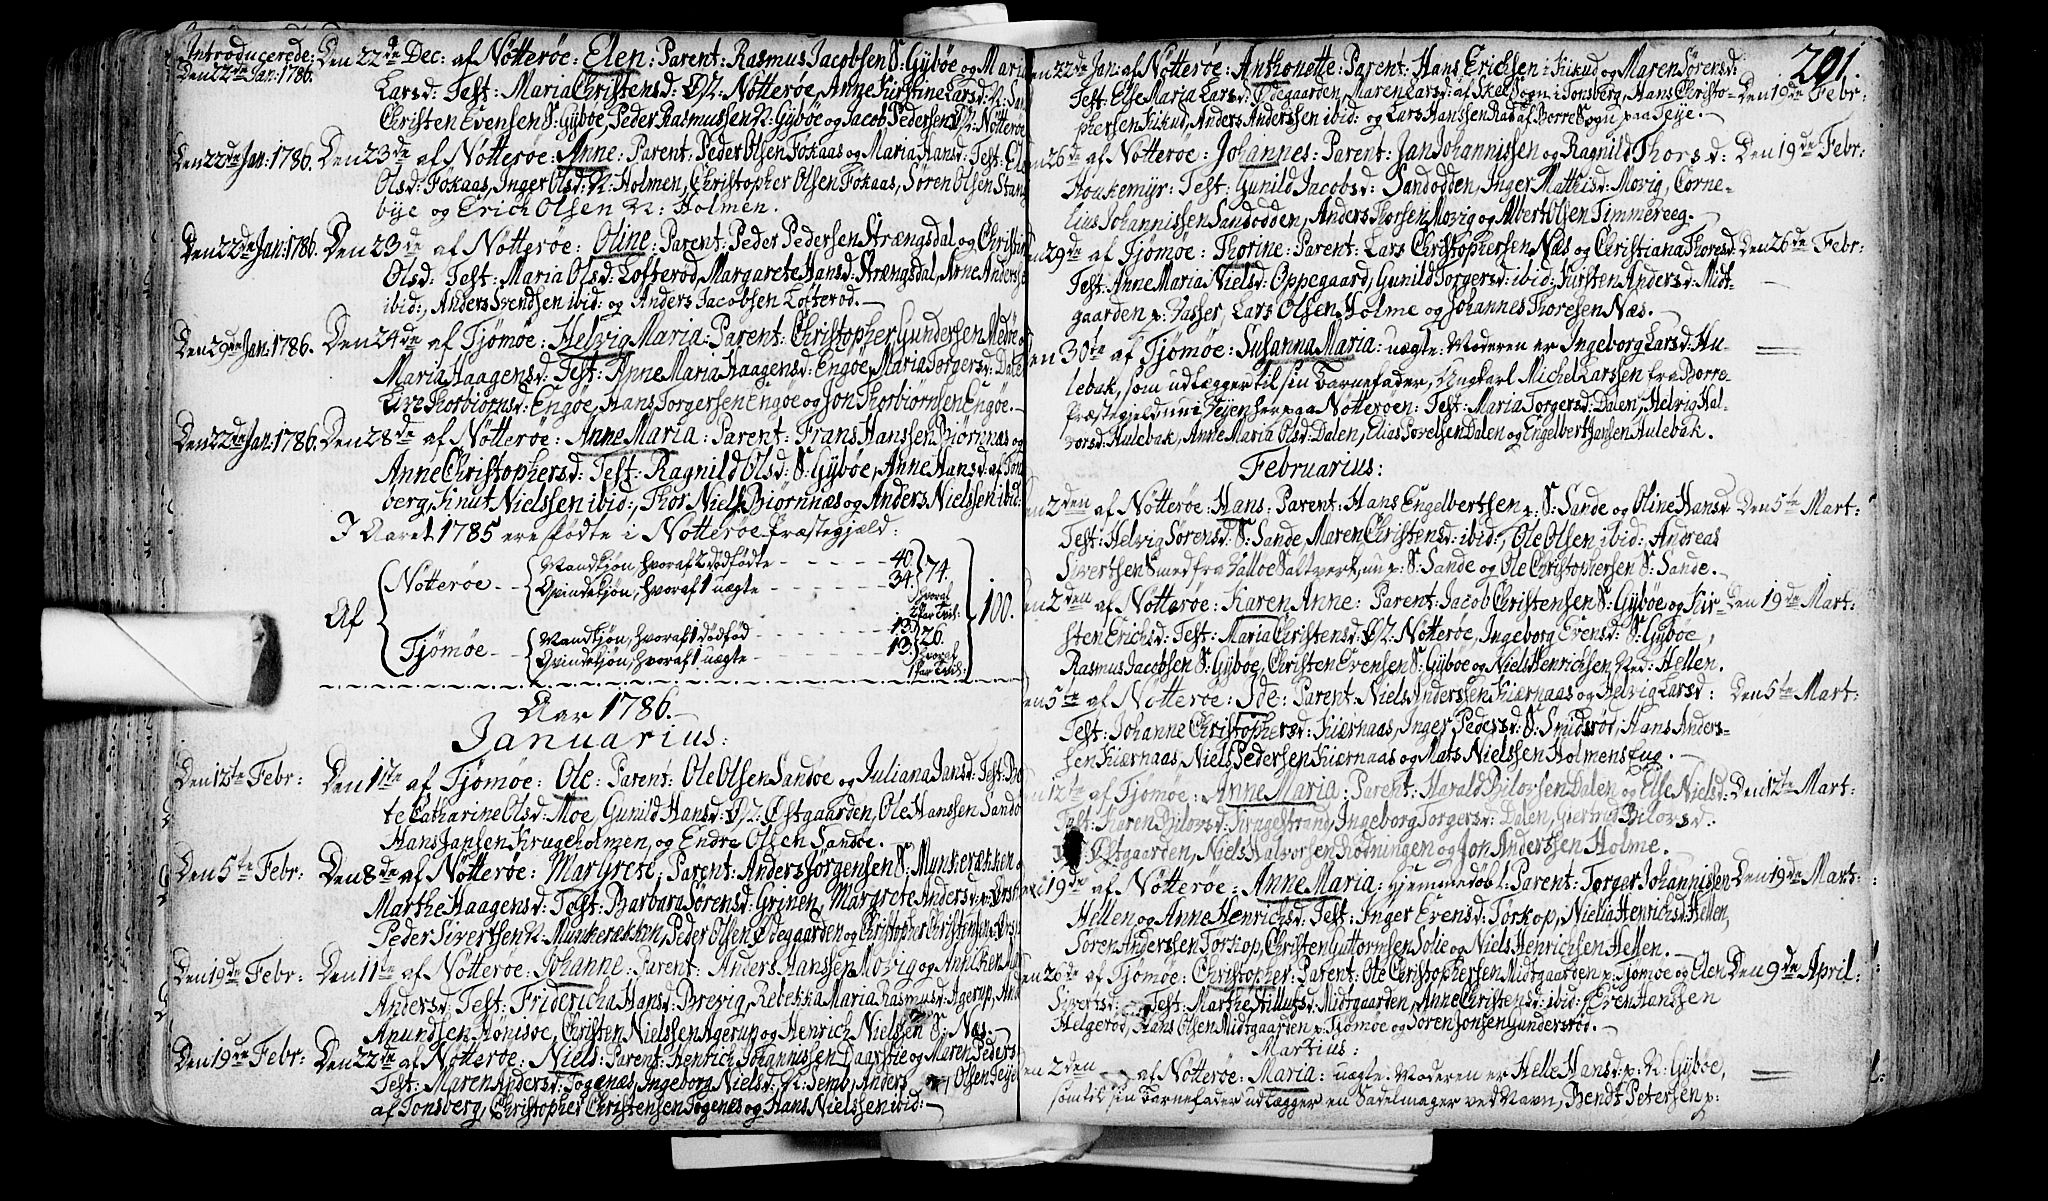 Introducerede: Den 22de Dec: af Nøtterøe: Elen: Parent: Rasmus Jacobsen S: Gÿbøe og Maria
Den 22de Jan: 1786.
Larsd: Test: Maria Christensd: Nøtterøe, Anne Kirstine Larsd:
Christen Evensen S: Gÿbøe, Peder Rasmussen N: Gÿbøe og Jacob Pedersen Nøtterøe
Den 22de Jan: 1786. Den 23de af Nøtterøe: Anne: Parent: Peder Olsen Fokaas og Maria Hansd: Test:
Olsd: Fokaas, Inger Olsd: N: Holmen, Christopher Olsen Fokaas, Søren Olsen Stang
bÿe og Erich Olsen N: Holmen.
Den 22de Jan: 1786. Den 23de af Nøtterøe: Oline: Parent: Peder Pedersen Strængsdal og
Olsd: Test: Maria Olsd: Løfterød, Margarete Hansd: Strængsdal, Arne Anders
ibid:, Anders Svendsen ibid: og Anders Jacobsen Løfterød.
Den 29de Jan: 1786. Den 24de af Tjømøe: Helvig Maria: Parent: Christopher Gundersen Medøe
Maria Haagensd: Test: Anne Maria Haagensd: Engøe, Maria Torgersd: Dalen
Live Thorbiørnsd: Engøe, Hans Torgersen Engøe og Jon Thorbiørnsen Engøe.
Den 22de Jan: 1786. Den 28de af Nøtterøe: Anne Maria: Parent: Frans Hanssen Biørnnæs og
Anne Christophersd: Test: Ragnild Olsd: S: Gÿbøe, Anne Hansd: af Tøns
berg, Knut Nielssen ibid:, Thor Niels: Biørnnæs og Anders Nielssen ibid:
I Aaret 1785 ere fødte i Nøtterøe Præstegjæld:
Af Nøtterøe -- Mandkjøn, hvoraf 2 dødfødte - - - - - 40. 74. 100.
Qvindekjøn, hvoraf 1 uægte - - - - - 34. hvoraf
Par Tvil:
Tjømøe -- Mandkjøn, hvoraf 1 dødfød - - - - - 13. 26.
Qvindekjøn, hvoraf 1 uægte - - - - - 13. hvoraf
1 Par Tvil:
Aar 1786.
Januarius:
Den 12te Febr: Den 1ste af Tjømøe: Ole: Parent: Ole Olsen Sandøe og Juliana Jansd: Test:
te Catharine Olsd: Moe, Gunild Hansd: Østgaarden, Ole Hanssen Sandøe
Hans Jansen Krugeholmen, og Endre Olsen Sandøe.
Den 5te Febr: Den 8de af Nøtterøe: Margrete, Parent: Anders Jørgensen S: Munkerækken
Marthe Haagensd: Test: Barbara Sørensd: Grinen, Margrete Andersd:
Peder Sivertsen N: Munkerækken, Peder Olsen Ødegaarden og Christopher Christensen
Den 19de Febr: Den 11te af Nøtterøe: Johanne: Parent: Anders Hanssen Movig og Anniken
Andersd: Test: Fridericha Hansd: Brevig, Rebekka Maria Rasmusd: Agerup,
Anundsen Honisøe, Christen Nielssen Agerup og Henrich Nielsen S: Næs.
Den 19de Febr: Den 22de af Nøtterøe: Niels: Parent: Henrich Johannissen Daarfie og Maren Peders
Test: Maren Andersd: Togenæs, Ingeborg Nielsd: N: Semb, Anders Olsen Teÿe
af Tønsberg, Christopher Christensen Togenes og Hans Nielssen ibid:
201.
22de Jan: af Nøtterøe: Anthonette: Parent: Hans Erichsen i Kikud og Maren Sørensd:
Test: Else Maria Larsd: Ødegaarden, Maren Larsd: af Skee Sogn i Tønsberg, Hans Christo- Den 19de Febr:
phersen Kikud, Anders Anderssen ibid: og Lars Hanssen Rad af Borre Sogn paa Teÿe.
26de af Nøtterøe: Johannes: Parent: Jan Johannissen og Ragnild Thorsd: Den 19de Febr:
Houkemÿr: Test: Gunild Jacobsd: Sandodden, Inger Mathisd: Movig, Corne-
lius Johannissen Sandodden, Anders Thorsen Movig og Albert Olsen Timmereeg.
29de af Tjømøe: Thorine: Parent: Lars Christophersen Næs og Christiana Thoresd: Den 26de Febr:
Test: Anne Maria Nielsd: Oppegaard, Gunild Torgersd: ibid:, Kirsten Andersd: Mid-
gaarden p: Hasser, Lars Olsen Holme og Johannes Thoresen Næs.
30te af Tjømøe: Susanna Maria: uægte: Moderen er Ingeborg Larsd: Hu-
lebak, som udlægger til sin Barnefader, Ungkarl Michel Larssen fra Borre-
Præstegjeld nu i Teÿen her paa Nøtterøen: Test: Maria Torgersd: Dalen, Helvig Hal-
vorsd: Hulebak, Anne Maria Olsd: Dalen, Elias Povelsen Dalen og Engelbert Jansen Hulebak.
Februarius:
2den af Nøtterøe: Hans: Parent: Hans Engelbertsen p: S: Sande og Oline Hansd: Den 5te Mart:
Test: Helvig Sørensd: S: Sande, Maren Christensd: ibid:, Ole Olsen ibid: Andreas
Sivertsen Smed fra Valløe Saltverk, nu p: S: Sande og Ole Christophersen S: Sande.
2den af Nøtterøe: Karen Anne: Parent: Jacob Christensen S: Gÿbøe og Kir- Den 19de Mart:
sten Erichsd: Test: Maria Christensd: Nøtterøe, Ingeborg Evensd: S: Gÿbøe,
Rasmus Jacobsen S: Gÿbøe, Christen Evensen S: Gÿbøe og Niels Henrichsen Ned: Hellen.
5te af Nøtterøe: Ide: Parent: Niels Anderssen Kiærnaas og Helvig Larsd: Den 5te Mart:
Test: Johanne Christophersd: Kiærnaas, Inger Pedersd: S: Smidsrød, Hans Anders-
sen Kiærnaas, Niels Pedersen Kiærnaas og Mats Nielssen Holmens Eng.
12te af Tjømøe: Anne Maria: Parent: Harald Bilovsen Dalen og Else Nielsd: Den 12te Mart:
Test: Karen Bilovsd: Krugestrand, Ingeborg Torgersd: Dalen, Giertrud Bilovsd:
Østgaarden, Niels Halvorsen Rødningen og Jon Anderssen Holme.
19de af Nøtterøe: Anne Maria: hjemmedøbt: Parent: Torger Johannissen Den 19de Mart:
Hellen og Anne Henrichsd: Test: Inger Evensd: Torkop, Nielia Henrichsd: Hellen,
Søren Anderssen Torkop, Christen Guttormsen Solie og Niels Henrichsen Hellen.
26de af Tjømøe: Christopher: Parent: Ole Christophersen Midtgaarden p: Tjømøe og Elen Den 9de April:
Sivertsd: Test: Marthe Killutsd: Midtgaarden, Anne Christensd: ibid: Even Hanssen
Helgerød, Hans Olsen Midtgaarden p: Tjømøe og Søren Jonsen Gundersrøt.
Martius:
2den af Nøtterøe: Maria: uægte: Moderen er Helle Hansd: p: N: Gÿbøe,
som til sin Barnefader udlægger en Sadelmager ved Navn, Bendt Petersen p: